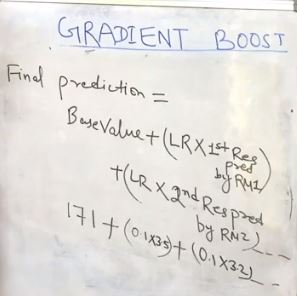 GRADIENT BOOST
Final prediction =
BaseValue + (LR X 1st Res
pred
by RM1)
+ (LR X 2nd Res pred
by RM2) ---
171 + (0.1X35) + (0.1X32) ---